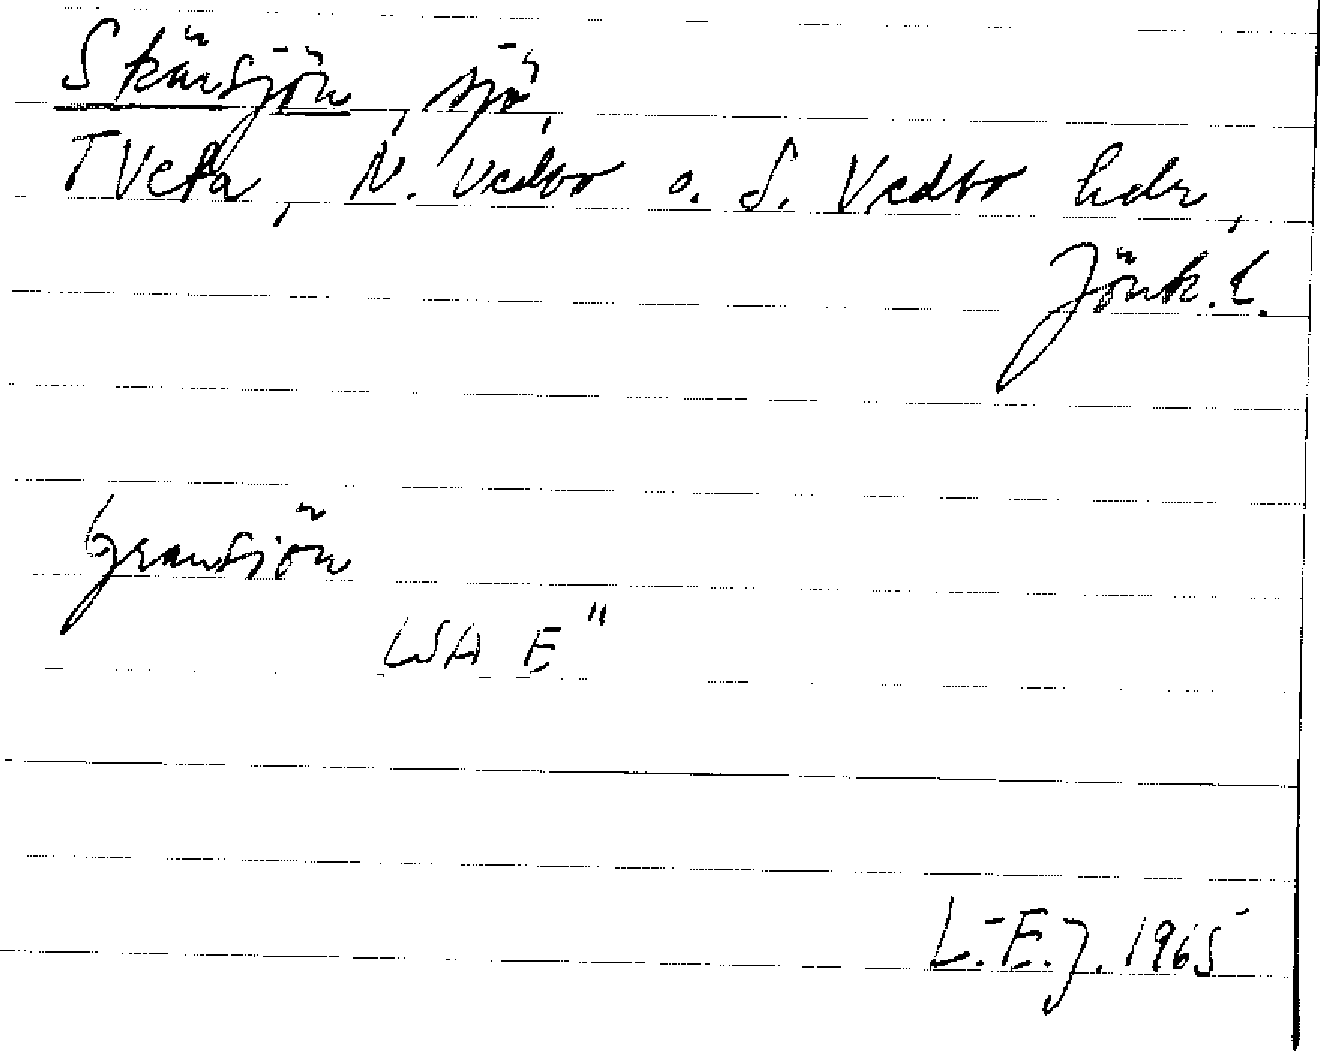 Skärsjön, sjö,
Tveta, N. Vedbo o. S. Vedbo hdr,
Jönk. l.
Gransjön
LSA E"
L.-E. J. 1965